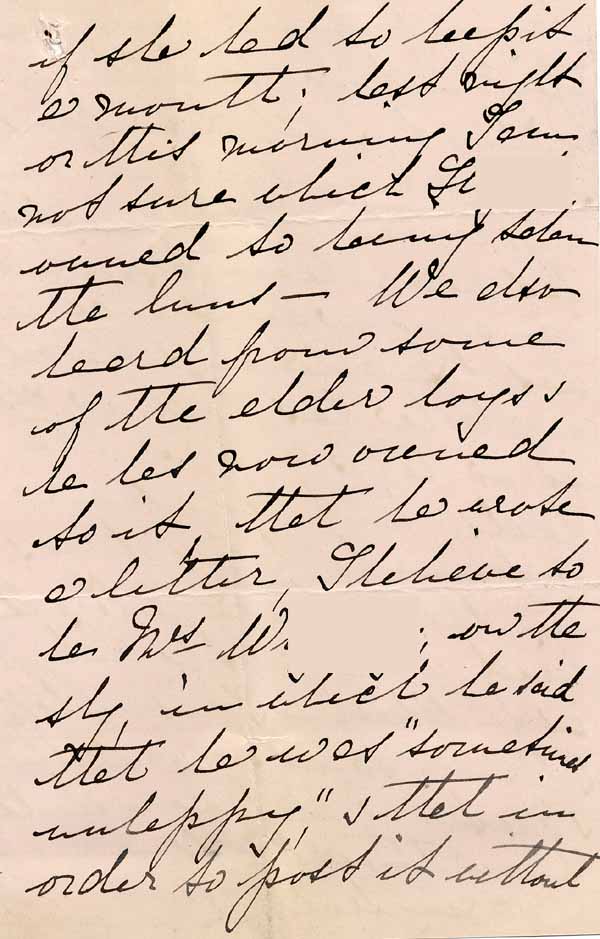 if she had to keep it
a month; last night
or this morning I am
not sure which
owned to having stolen
the buns – We also
heard from some
of the elder boys &
he has now owned
to it, that he wrote
a letter, I believe to
be Mrs W. ; on the
sly, in which he said
that he was "sometimes
unhappy," & that in
order to post it without